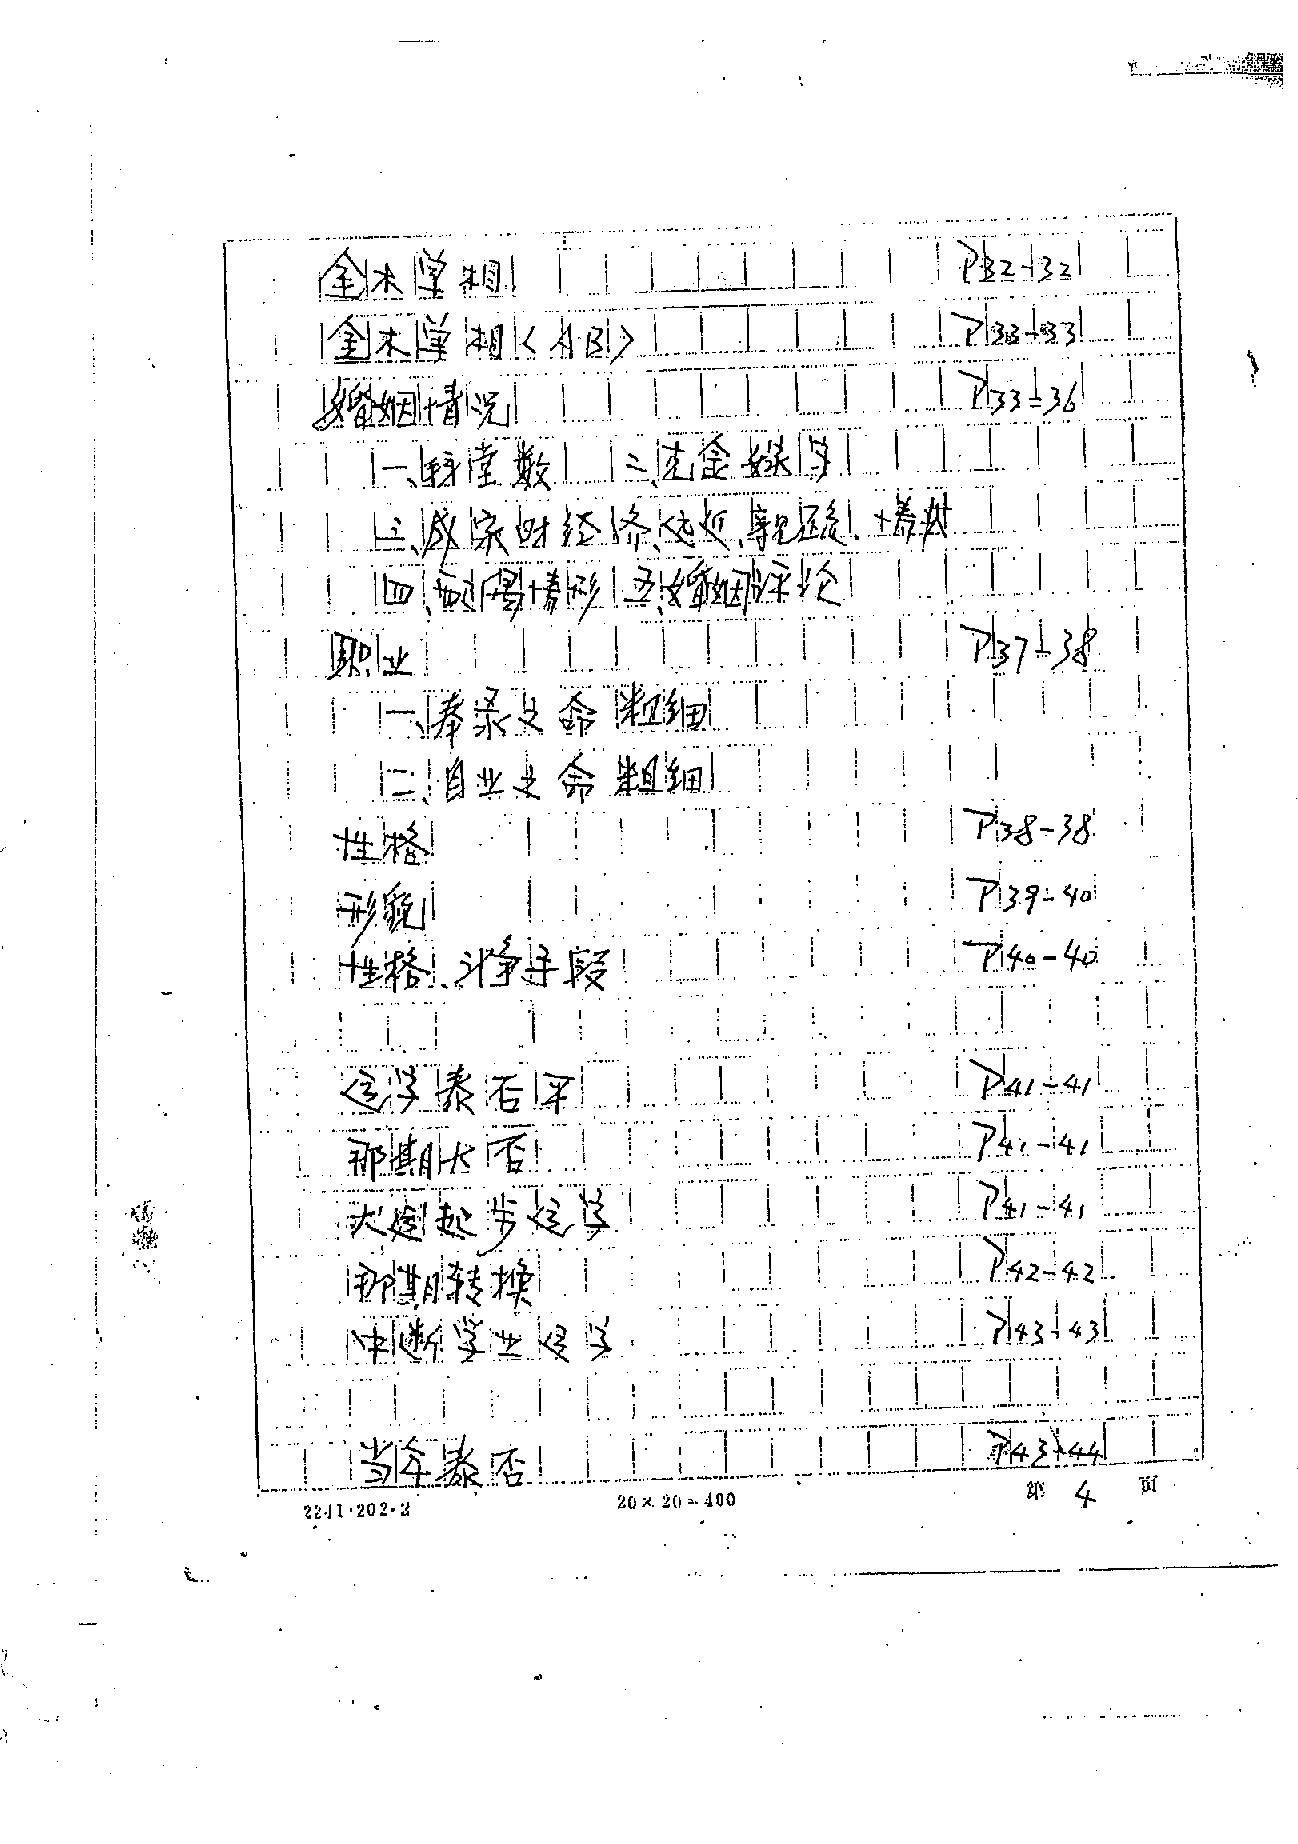 金木学相 P32-32
金木学相〈AB〉 P33-33
婚姻情况 P33-36
一、拜堂数 二、克金娱学
三、成家时经济、远近、亲疏、情对
四、配偶情形 五、婚姻评论
职业 P37-38
一、奉录之命粗细
二、自业之命粗细
性格 P38-38
形貌 P39-40
性格、斗争手段 P40-40
运学泰否平 P41-41
那期大否 P41-41
大运起步运学 P41-41
那期转换 P42-42
中断学业运学 P43-43
当年泰否 P43-44
22-11·202-2 20×20=400 第 4 页